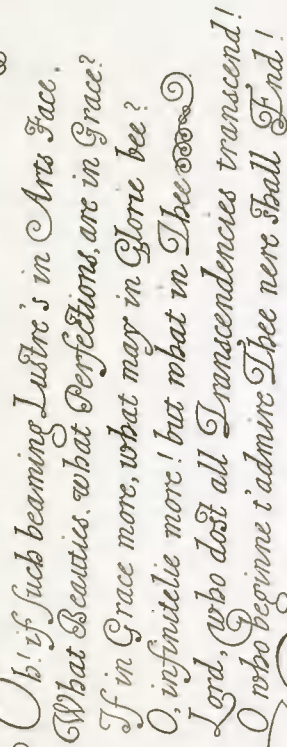 Oh! if such beaming Lustre's in Arts Face.
What Beauties, what Perfections, are in Grace?
If in Grace more, what may in Glorie bee?
O, infinitelie more! but what in Thee
Lord, who dost all Transcendencies transcend!
O who beginne t'admire Thee nere shall End!